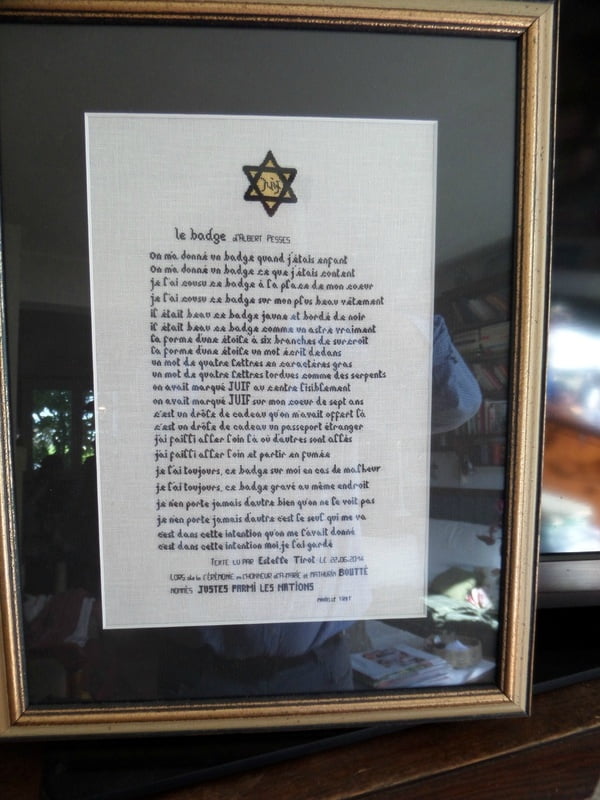 Juif
le badge d'ALBERT PESSES
on m'a donné un badge quand j'étais enfant
on m'a donné un badge ce que j'étais content
je l'ai cousu ce badge à la place de mon coeur
je l'ai cousu ce badge sur mon plus beau vêtement
il était beau ce badge jaune et bordé de noir
il était beau ce badge comme un astre vraiment
la forme d'une étoile à six branches de surcroit
la forme d'une étoile un mot écrit dedans
un mot de quatre lettres en caractères gras
un mot de quatre lettres tordues comme des serpents
on avait marqué JUIF au centre lisiblement
on avait marqué JUIF sur mon coeur de sept ans
c'est un drôle de cadeau qu'on m'avait offert là
c'est un drôle de cadeau un passeport étranger
j'ai failli aller loin là où d'autres sont allés
j'ai failli aller loin et partir en fumée
je l'ai toujours, ce badge sur moi en cas de malheur
je l'ai toujours, ce badge gravé au même endroit
je n'en porte jamais d'autre bien qu'on ne le voit pas
je n'en porte jamais d'autre c'est le seul qui me va
c'est dans cette intention qu'on me l'avait donné
c'est dans cette intention moi je l'ai gardé
TEXTE LU PAR Estelle Tirot LE 22.06.2014
LORS de la CÉRÉMONIE en l'HONNEUR d'A-MARIE et MATHURIN BOUTTÉ
NOMMÉS JUSTES PARMI LES NATIONS
TIROT